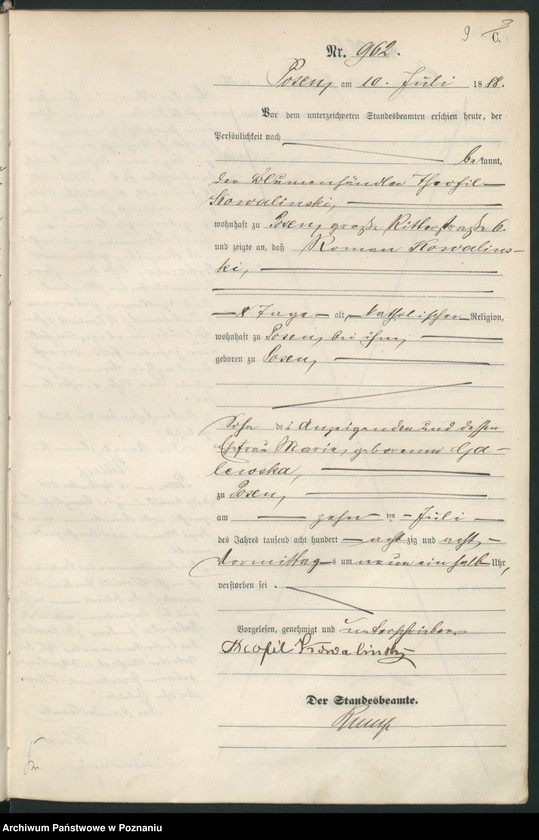 9
C.
Nr. 962.
Posen, am 10. Juli 1888.
Vor dem unterzeichneten Standesbeamten erschien heute, der
Persönlichkeit nach
bekannt,
der Blumenhändler Theofil
Kowalinski,
wohnhaft zu Posen, große Ritterstraße 6.
und zeigte an, daß Roman Kowalins-
ki,
8 Tage alt, katholischen Religion,
wohnhaft zu Posen, bei ihm,
geboren zu Posen,
Sohn des Anzeigenden und dessen
Ehefrau Maria, geborenen Ga-
lewska,
zu Posen,
am zehn ten Juli
des Jahres tausend acht hundert achtzig und acht,
Vormittags um neun ein halb Uhr,
verstorben sei.
Vorgelesen, genehmigt und unterschrieben
Teofil Kowalinsky
Der Standesbeamte.
Archiwum Państwowe w Poznaniu